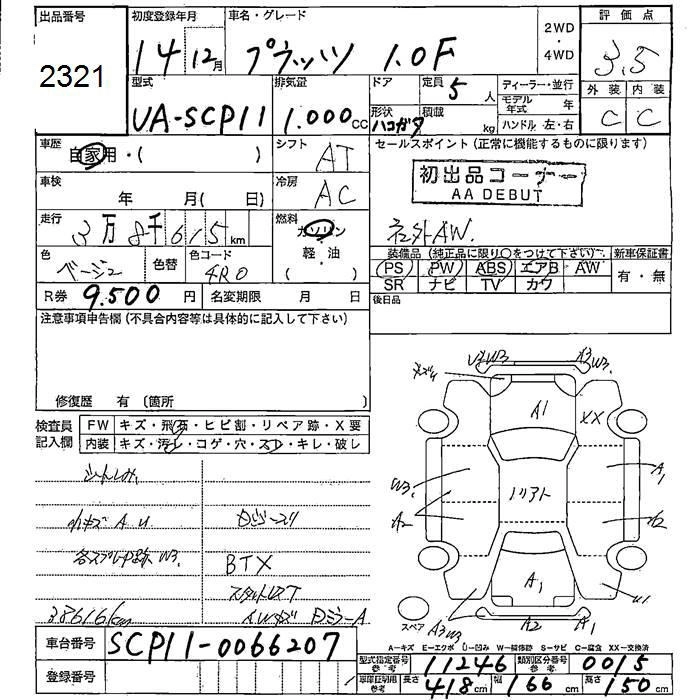 出品番号 初度登録年月 車名・グレード 2WD・4WD 評価点
2321 14年12月 プラッツ 1.0F 3.5
型式 排気量 ドア 定員 5人 ディーラー・並行 外装 内装
UA-SCP11 1.000cc 形状 ハコガタ 積載 kg モデル年式 年 C C
ハンドル 左・右
車歴 自家用・( ) シフト AT セールスポイント(正常に機能するものに限ります)
初出品コーナー
AA DEBUT
車検 年 月( 日) 冷房 AC
走行 3万8千615km 燃料 ガソリン・軽・油( ) 社外AW.
色 ベージュ 色替 色コード 4R0
装備品(純正品に限り○をつけて下さい) 新車保証書
PS PW ABS エアB AW 有・無
SR ナビ TV カワ
R券 9.500円 名変期限 月 日 後日品
注意事項申告欄(不具合内容等は具体的に記入して下さい)
修復歴 有〔箇所 〕
検査員記入欄 FW キズ・飛石・ヒビ割・リペア跡・X要
内装 キズ・汚レ・コゲ・穴・スレ・キレ・破レ
シートしみ
小キズ A U
各スプレー跡 W3
BTX
38616km
U3W3 A3W3.
A1 XX
W3. A2 A1
A1
スペア A3W3 A2 A1 U1
A-キズ E-エクボ U-凹み W-補修跡 S-サビ C-腐食 XX-交換済
車台番号 SCP11-0066207
登録番号
型式指定番号 参考 11246 類別区分番号 参考 0015
車庫証明用 参考 長さ 418cm 幅 166cm 高さ 150cm